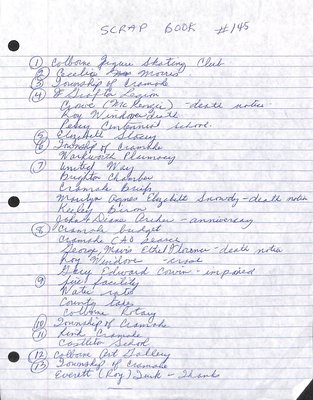 SCRAP BOOK #145
① Colborne Figure Skating Club
② Cecelia Morris
③ Township of Cramahe
④ Grafton Legion
Crowe (McKenzie) - death notice
Roy Windover death
Percy Centennial school
⑤ Elizabeth Stacey
⑥ Township of Cramahe
Warkworth Pharmacy
⑦ United Way
Brighton Chamber
Cramahe Briefs
Marilyn Agnes Elizabeth Snowdy - death notice
Keeley
John & Diane Archer - anniversary
⑧ Cramahe budget
Cramahe CAO leaves
George, Mavis Ethel Florence - death notice
Roy Windover -
Gary Edward Cowin - impaired
⑨ facility
Water rates
County taxes
Colborne Rotary
⑩ Township of Cramahe
⑪ Cramahe
Castleton School
⑫ Colborne Art Gallery
⑬ Township of Cramahe
Everett (Roy) Turk - Thanks